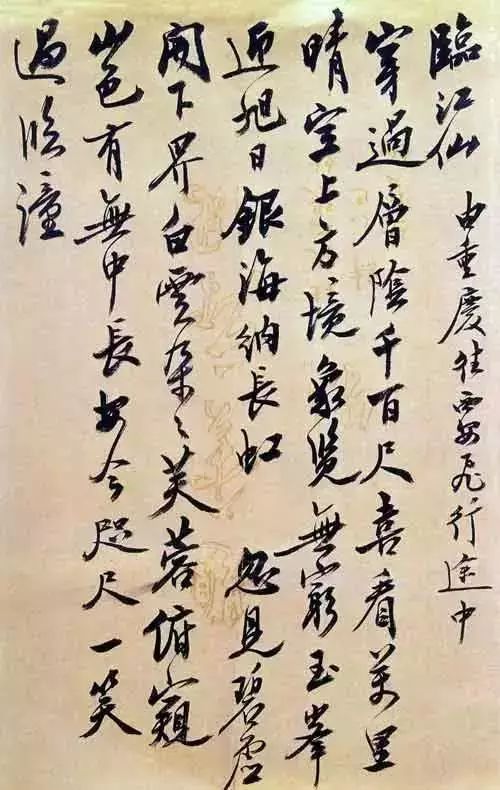 臨江仙 由重慶往西安飛行途中
穿過層陰千百尺喜看萬里
晴空上方境象览無窮玉峯
迎旭日銀海納長虹 忽見碧虛
開下界白雲朵々芙蓉俯窺
山色有無中長安今咫尺一笑
過臨潼